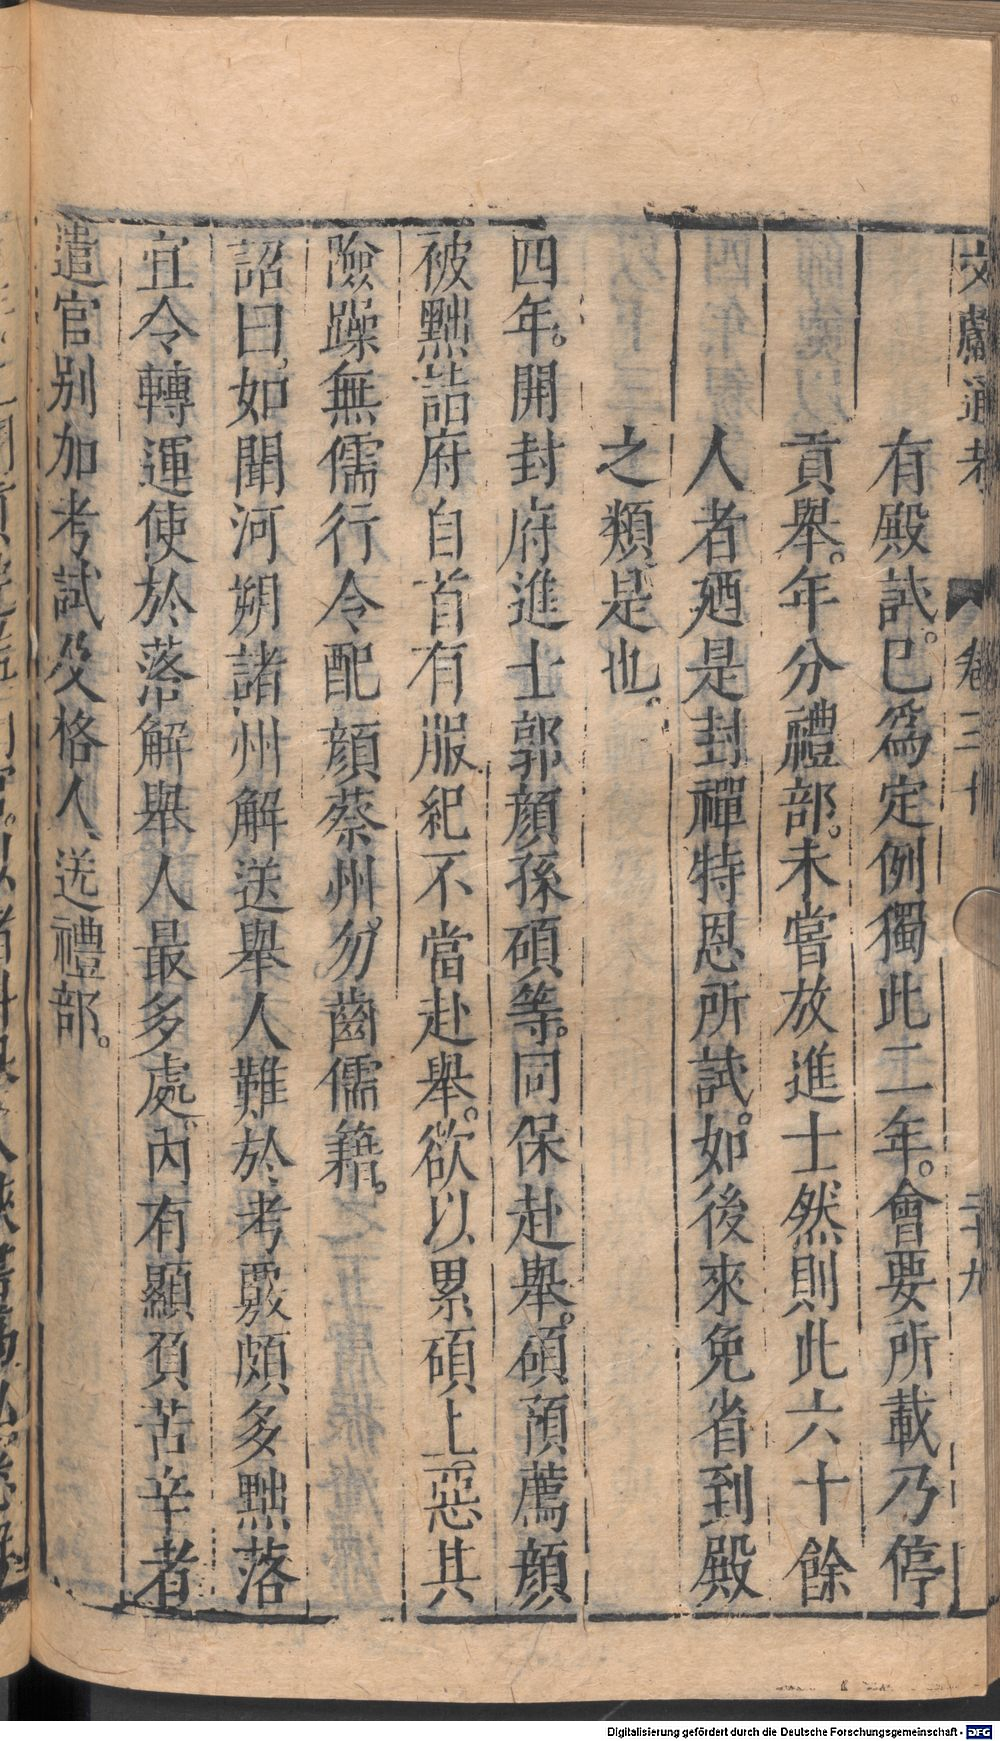 文獻通考 卷三十 二十九
有殿試。已爲定例獨此二年。會要所載乃停
貢舉。年分禮部。未嘗放進士然則此六十餘
人者廼是封禪特恩所試。如後來免省到殿
之類是也。
四年。開封府進士郭顏孫碩等。同保赴舉。碩預薦顏
被黜詣府自首有服紀不當赴舉。欲以累碩上惡其
險躁無儒行令配顏蔡州。勿齒儒籍。
詔曰。如聞河朔諸州解送舉人難於考覈頗多黜落
宜令轉運使於落解舉人最多處。內有顯負苦辛者
遣官別加考試及格人送禮部。
Digitalisierung gefördert durch die Deutsche Forschungsgemeinschaft - DFG